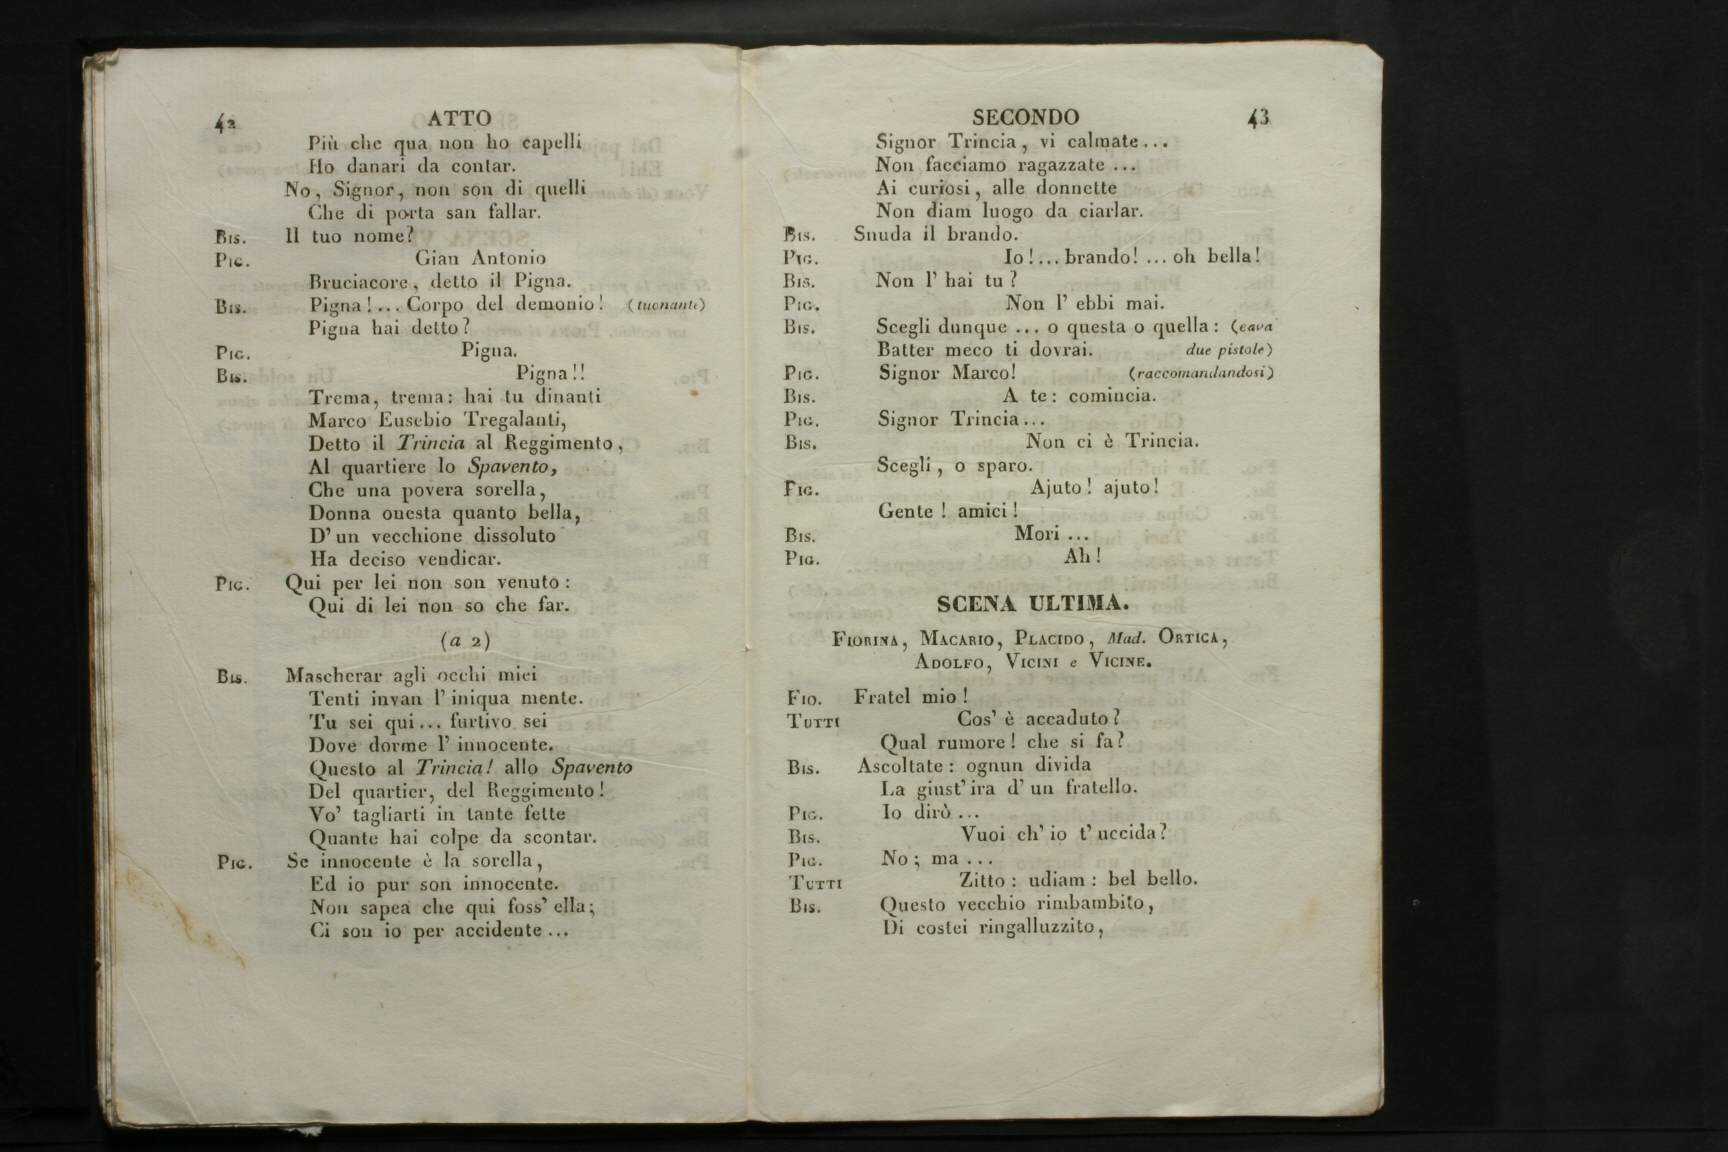 42 ATTO
Più che qua non ho capelli
Ho danari da contar.
No, Signor, non son di quelli
Che di porta san fallar.
Bis. Il tuo nome?
Pig. Gian Antonio
Bruciacore, detto il Pigna.
Bis. Pigna!... Corpo del demonio! (tuonante)
Pigna hai detto?
Pig. Pigna.
Bis. Pigna!!
Trema, trema: hai tu dinanti
Marco Eusebio Tregalanti,
Detto il Trincia al Reggimento,
Al quartiere lo Spavento,
Che una povera sorella,
Donna onesta quanto bella,
D' un vecchione dissoluto
Ha deciso vendicar.
Pig. Qui per lei non son venuto:
Qui di lei non so che far.
(a 2)
Bis. Mascherar agli occhi miei
Tenti invan l' iniqua mente.
Tu sei qui... furtivo sei
Dove dorme l' innocente.
Questo al Trincia! allo Spavento
Del quartier, del Reggimento!
Vo' tagliarti in tante fette
Quante hai colpe da scontar.
Pig. Se innocente è la sorella,
Ed io pur son innocente.
Non sapea che qui foss' ella;
Ci son io per accidente...
SECONDO 43
Signor Trincia, vi calmate...
Non facciamo ragazzate ...
Ai curiosi, alle donnette
Non diam luogo da ciarlar.
Bis. Snuda il brando.
Pig. Io!... brando! ... oh bella!
Bis. Non l' hai tu?
Pig. Non l' ebbi mai.
Bis. Scegli dunque ... o questa o quella: (cava
Batter meco ti dovrai. due pistole)
Pig. Signor Marco! (raccomandandosi)
Bis. A te: comincia.
Pig. Signor Trincia...
Bis. Non ci è Trincia.
Scegli, o sparo.
Pig. Ajuto! ajuto!
Gente! amici!
Bis. Mori ...
Pig. Ah!
SCENA ULTIMA.
Fiorina, Macario, Placido, Mad. Ortica,
Adolfo, Vicini e Vicine.
Fio. Fratel mio!
Tutti Cos' è accaduto?
Qual rumore! che si fa?
Bis. Ascoltate: ognun divida
La giust' ira d' un fratello.
Pig. Io dirò ...
Bis. Vuoi ch' io t' uccida?
Pig. No; ma ...
Tutti Zitto: udiam: bel bello.
Bis. Questo vecchio rimbambito,
Di costei ringalluzzito,